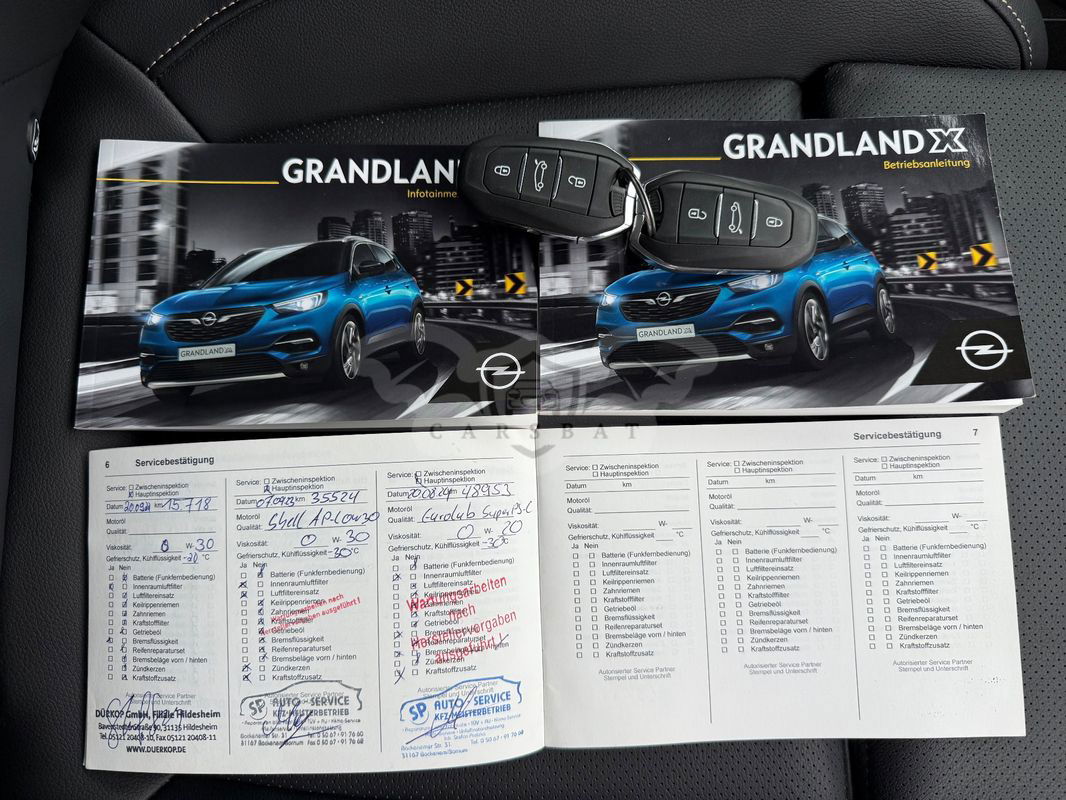 GRANDLAN
Infotainme
GRANDLAND X
Betriebsanleitung
GRANDLAND X
GRANDLAND X
CARSBAT
6 Servicebestätigung
Service: Zwischeninspektion
Hauptinspektion
Datum km 15718
Motoröl
Qualität:
Viskosität: 0 W- 30
Gefrierschutz, Kühlflüssigkeit -20 °C
Ja Nein
Batterie (Funkfernbedienung)
Innenraumluftfilter
Luftfiltereinsatz
Keilrippenriemen
Zahnriemen
Kraftstofffilter
Getriebeöl
Bremsflüssigkeit
Reifenreparaturset
Bremsbeläge vorn / hinten
Zündkerzen
Kraftstoffzusatz
Autorisierter Service Partner
DÜRKOP GmbH, Filiale Hildesheim
31135 Hildesheim
Tel. 05121 20408-10, Fax 05121 20408-11
WWW.DUERKOP.DE
Service: Zwischeninspektion
Hauptinspektion
Datum 070923 km 35524
Motoröl
Qualität: Shell AP-Low30
Viskosität: 0 W- 30
Gefrierschutz, Kühlflüssigkeit -30 °C
Ja Nein
Batterie (Funkfernbedienung)
Innenraumluftfilter
Luftfiltereinsatz
Keilrippenriemen
Zahnriemen
Kraftstofffilter
Getriebeöl
Bremsflüssigkeit
Reifenreparaturset
Bremsbeläge vorn / hinten
Zündkerzen
Kraftstoffzusatz
Wartungsarbeiten nach
Herstellervorgaben ausgeführt!
Autorisierter Service Partner
SP AUTO-SERVICE
KFZ-MEISTERBETRIEB
Bockenemer Str. 31 Tel. 0 50 67 - 91 76 60
31167 Bockenem/Bornum Fax 0 50 67 - 91 76 61
Service: Zwischeninspektion
Hauptinspektion
Datum 200824 km 48953
Motoröl
Qualität: Eurolub
Viskosität: 0 W- 20
Gefrierschutz, Kühlflüssigkeit -30 °C
Ja Nein
Batterie (Funkfernbedienung)
Innenraumluftfilter
Luftfiltereinsatz
Keilrippenriemen
Zahnriemen
Kraftstofffilter
Getriebeöl
Bremsflüssigkeit
Reifenreparaturset
Bremsbeläge vorn / hinten
Zündkerzen
Kraftstoffzusatz
Wartungsarbeiten
nach
Herstellervorgaben
ausgeführt!
Autorisierter Service Partner
Stempel und Unterschrift
SP AUTO-SERVICE
KFZ-MEISTERBETRIEB
Bockenemer Str. 31 Tel. 0 50 67 - 91 76 60
31167 Bockenem/Bornum
Servicebestätigung 7
Service: Zwischeninspektion
Hauptinspektion
Datum km
Motoröl
Qualität:
Viskosität: W-
Gefrierschutz, Kühlflüssigkeit °C
Ja Nein
Batterie (Funkfernbedienung)
Innenraumluftfilter
Luftfiltereinsatz
Keilrippenriemen
Zahnriemen
Kraftstofffilter
Getriebeöl
Bremsflüssigkeit
Reifenreparaturset
Bremsbeläge vorn / hinten
Zündkerzen
Kraftstoffzusatz
Autorisierter Service Partner
Stempel und Unterschrift
Service: Zwischeninspektion
Hauptinspektion
Datum km
Motoröl
Qualität:
Viskosität: W-
Gefrierschutz, Kühlflüssigkeit °C
Ja Nein
Batterie (Funkfernbedienung)
Innenraumluftfilter
Luftfiltereinsatz
Keilrippenriemen
Zahnriemen
Kraftstofffilter
Getriebeöl
Bremsflüssigkeit
Reifenreparaturset
Bremsbeläge vorn / hinten
Zündkerzen
Kraftstoffzusatz
Autorisierter Service Partner
Stempel und Unterschrift
Service: Zwischeninspektion
Hauptinspektion
Datum km
Motoröl
Qualität:
Viskosität: W-
Gefrierschutz, Kühlflüssigkeit °C
Ja Nein
Batterie (Funkfernbedienung)
Innenraumluftfilter
Luftfiltereinsatz
Keilrippenriemen
Zahnriemen
Kraftstofffilter
Getriebeöl
Bremsflüssigkeit
Reifenreparaturset
Bremsbeläge vorn / hinten
Zündkerzen
Kraftstoffzusatz
Autorisierter Service Partner
Stempel und Unterschrift